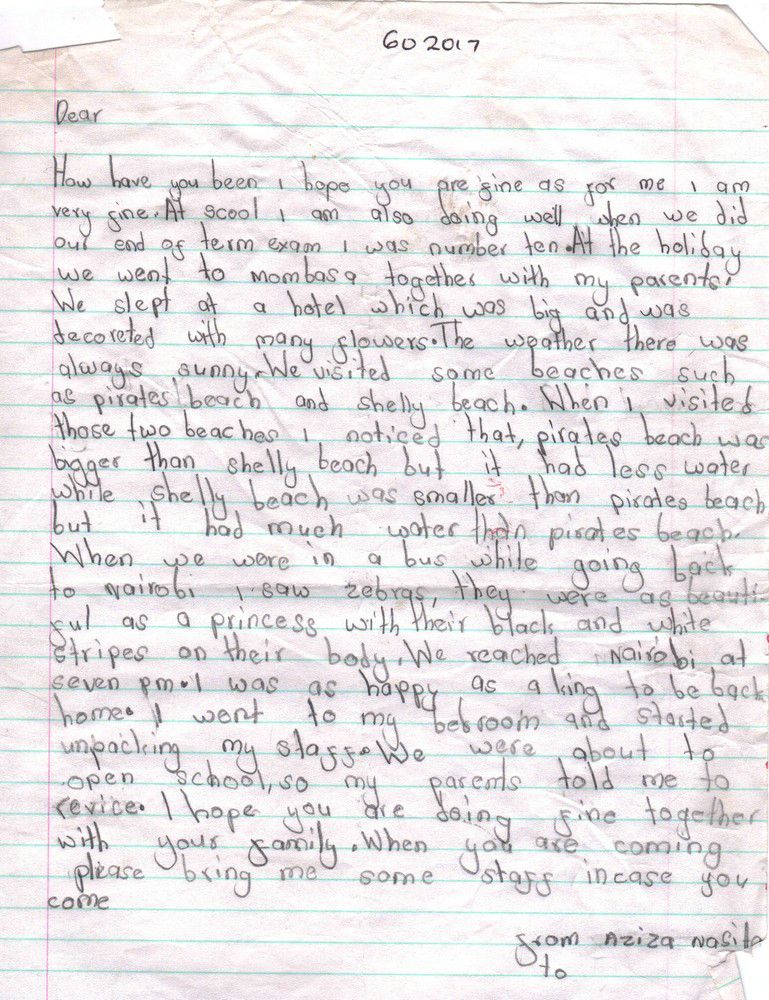 GO 2017
Dear
How have you been i hope you are fine as for me i am
very fine. At scool i am also doing well when we did
our end of term exam i was number ten. At the holiday
we went to mombasa together with my parents.
We slept at a hotel which was big and was
decoreted with many flowers. The weather there was
always sunny. We visited some beaches such
as pirates' beach and shelly beach. When i visited
those two beaches i noticed that, pirates beach was
bigger than shelly beach but it had less water
while shelly beach was smaller than pirates beach
but it had much water than pirates beach.
When we were in a bus while going back
to Nairobi i saw zebras, they were as beauti-
ful as a princess with their black and white
stripes on their body. We reached Nairobi at
seven pm. I was as happy as a king to be back
home. I went to my bedroom and started
unpacking my staff. We were about to
open school, so my parents told me to
revice. I hope you are doing fine together
with your family. When you are coming
please bring me some staff incase you
come
from Aziza
to